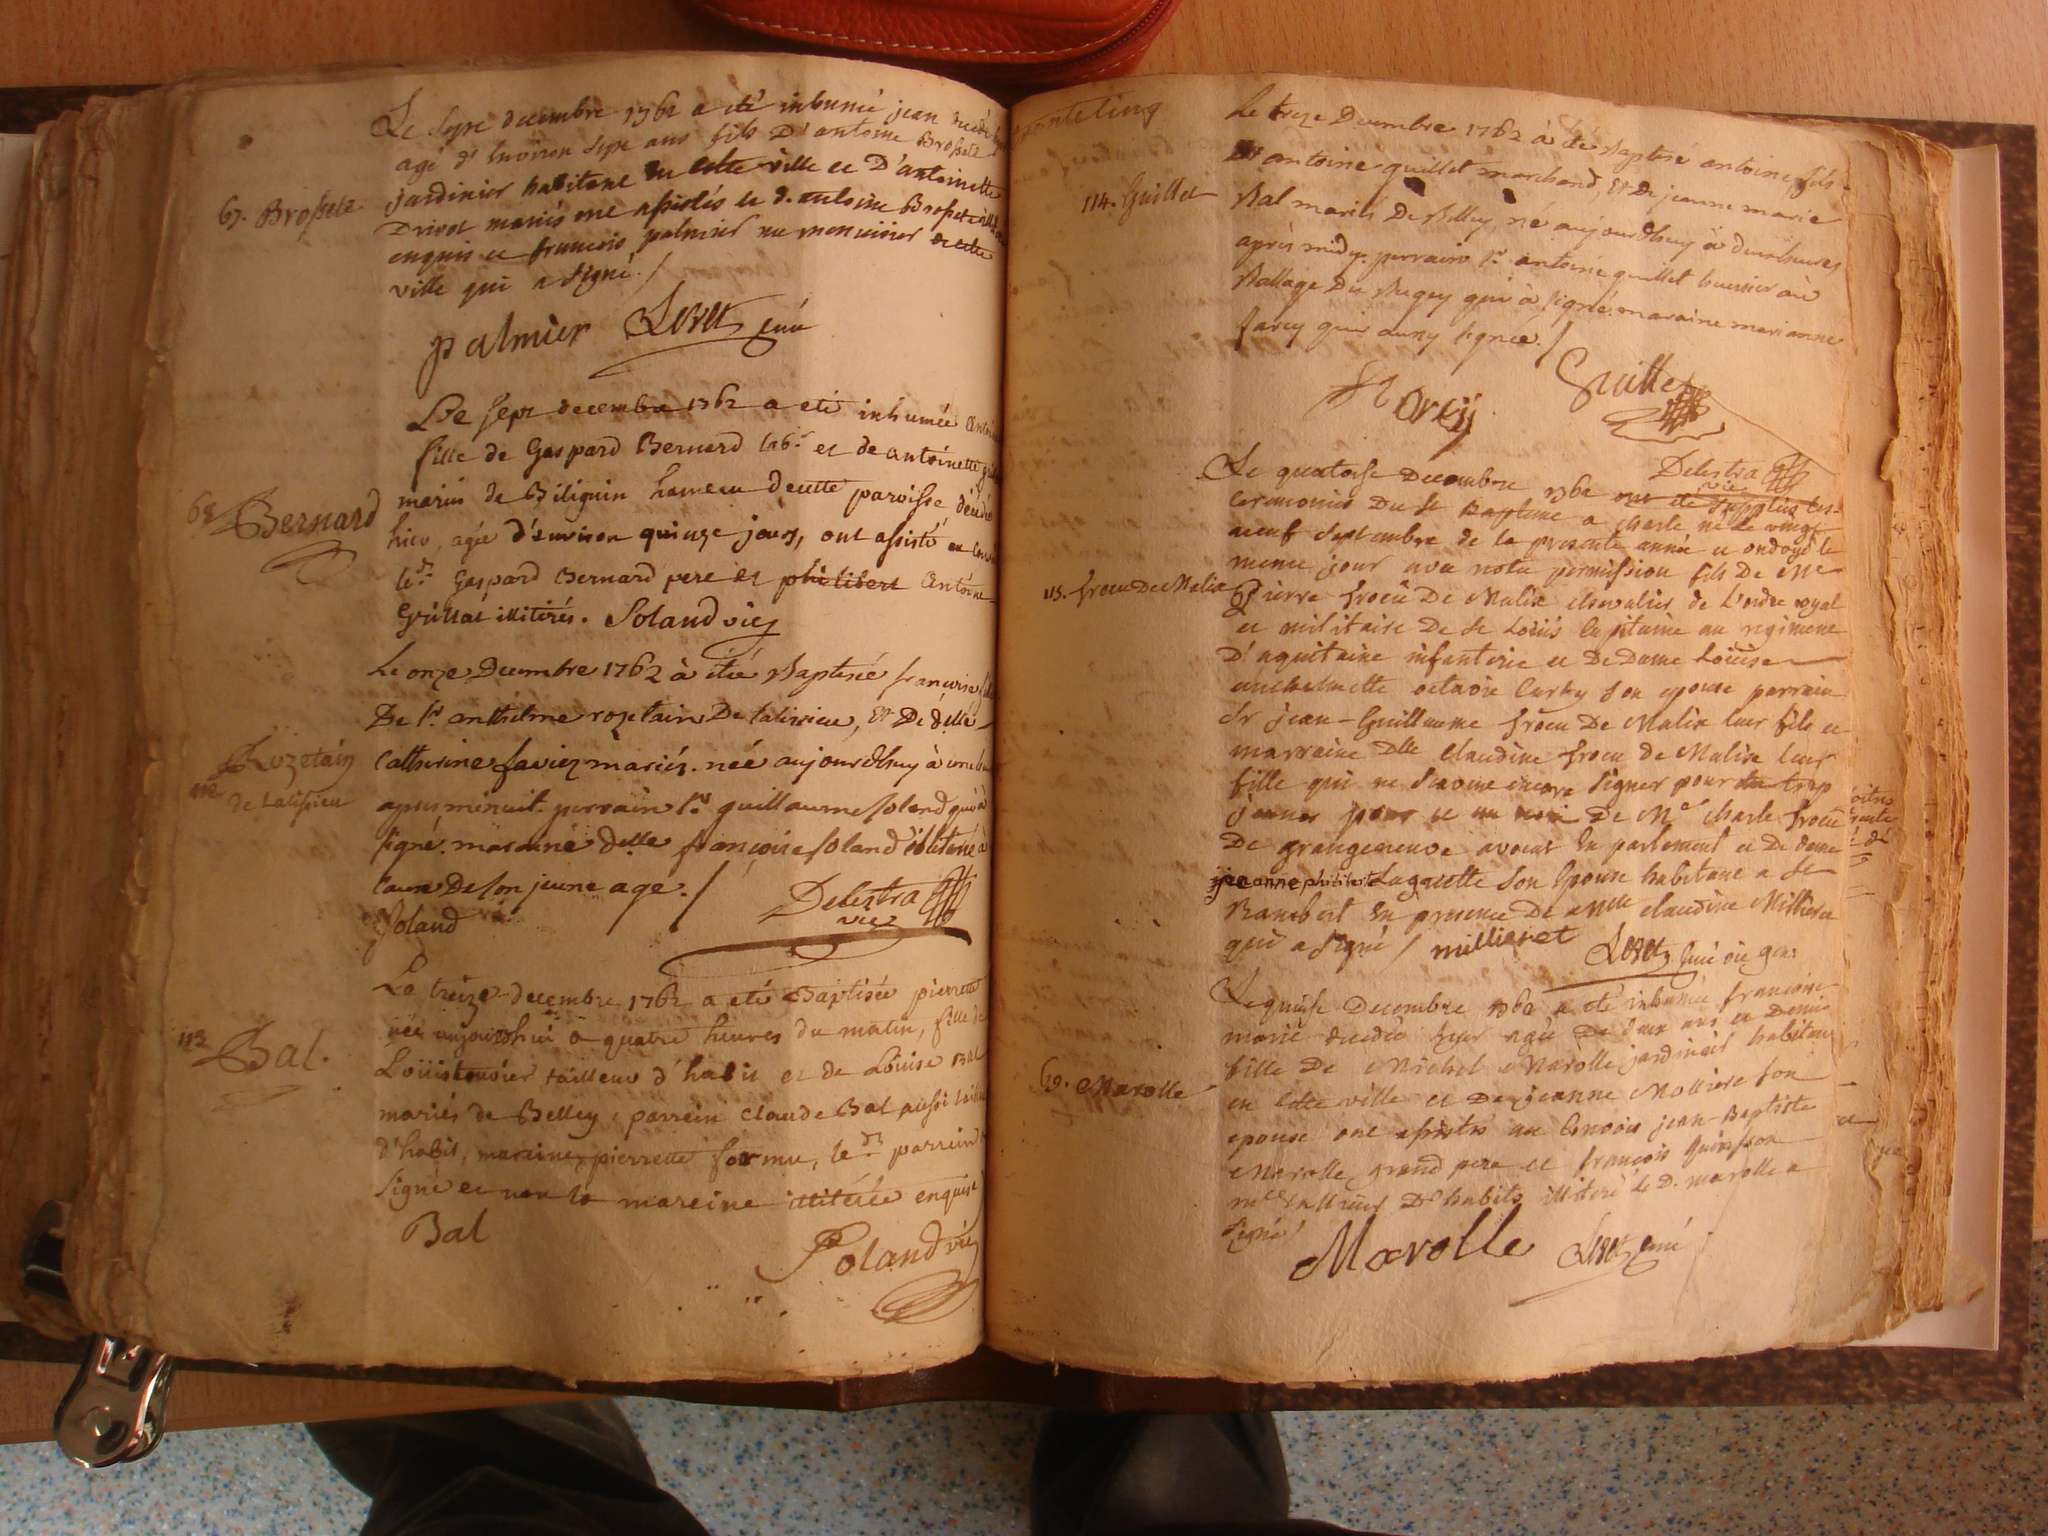 67. Brossete
Le Sept decembre 1762 a été inhumé jean
agé d'Environ Sept ans fils D'antoine Brossete
jardinier habitant en cette ville et D'antoinette
Drivet mariés ont assistés le d. antoine Brossete
enquis et francois palmier me menuisier de cette
ville qui a signé. /
palmier
curé
68
Bernard
Le sept decembre 1762 a eté inhumée
fille de Gaspard Bernard lab.r et de antoinette
mariés de Billignin hameau de cette paroisse décédée
hier, agée d'environ quinze jours, ont assisté au
led.t Gaspard Bernard pere et philibert Antoine
Grillat illitérés. Soland vic
112
Rozetain
de Talissieu
Le onze Decembre 1762 à été Baptisée françoise
De Sr. anthelme rozetain De talissieu, Et De delle
Catherine favier mariés. née aujourdhuy à une
apres minuit. perrain Sr. guillaume Soland qui à
signé. maraine delle françoise Soland illiterée à
Cause De son jeune age. /
Soland
Delestra
vic
113
Bal.
Le treize decembre 1762 a eté Baptisée pierrette
née aujourdhui a quatre heures du matin, fille de
Louis tailleur d'habit et de Louise Bal
mariés de Belley. parrein Claude Bal aussi
d'habit, mareine pierrette, le d.t parrein
signé et non la mareine illitérée enquise
Bal
Soland vic
114. Guillet
Le treze Decembre 1762 à été Baptisé antoine, fils
De antoine guillet marchand, Et De jeanne marie
Bal mariés De Belley, né aujourdhuy à deux heures
après midy. perrain Sr. antoine guillet huissier au
Ballage Du Bugey qui à signé. maraine marianne
farcy qui aussy signée. /
Guillet
Delestra
vic
115. frocu De Malix
Le quatorse Decembre 1762 ont été Supplées les
ceremonies Du St Bapteme a charle né le vingt
neuf Septembre de la presente année et ondoyé le
meme jour avec notre permission fils De Mre
Pierre frocu De Malix chevalier de L'ordre royal
et militaire De St Louis Capitaine au regiment
D'aquitaine infanterie et De Dame Louise
octavie son epouse parrain
Sr jean-Guillaume frocu De Malix leur fils et
marraine Dlle Claudine frocu de Malix leur
fille qui ne scavent encore signer pour trop
jeunes De Mre Charle frocu
De grangeneuve avocat En parlement et De dame
jeanne philiberte son Epouse habitant a St
Rambert En presence De Mlle claudine Millieret
qui a signé / millieret
69. Marolle
Le quinse Decembre 1762 a été inhumée francoise
marie decedée hyer agée De deux ans et Demie
fille De Michel Marolle jardinier habitant
en Cette ville et De jeanne Molliere son
epouse ont assistés au Convois jean-Baptiste
Marolle grand pere et francois
tailleur D'habits illiteré le D. marolle a
signé
Marolle
curé